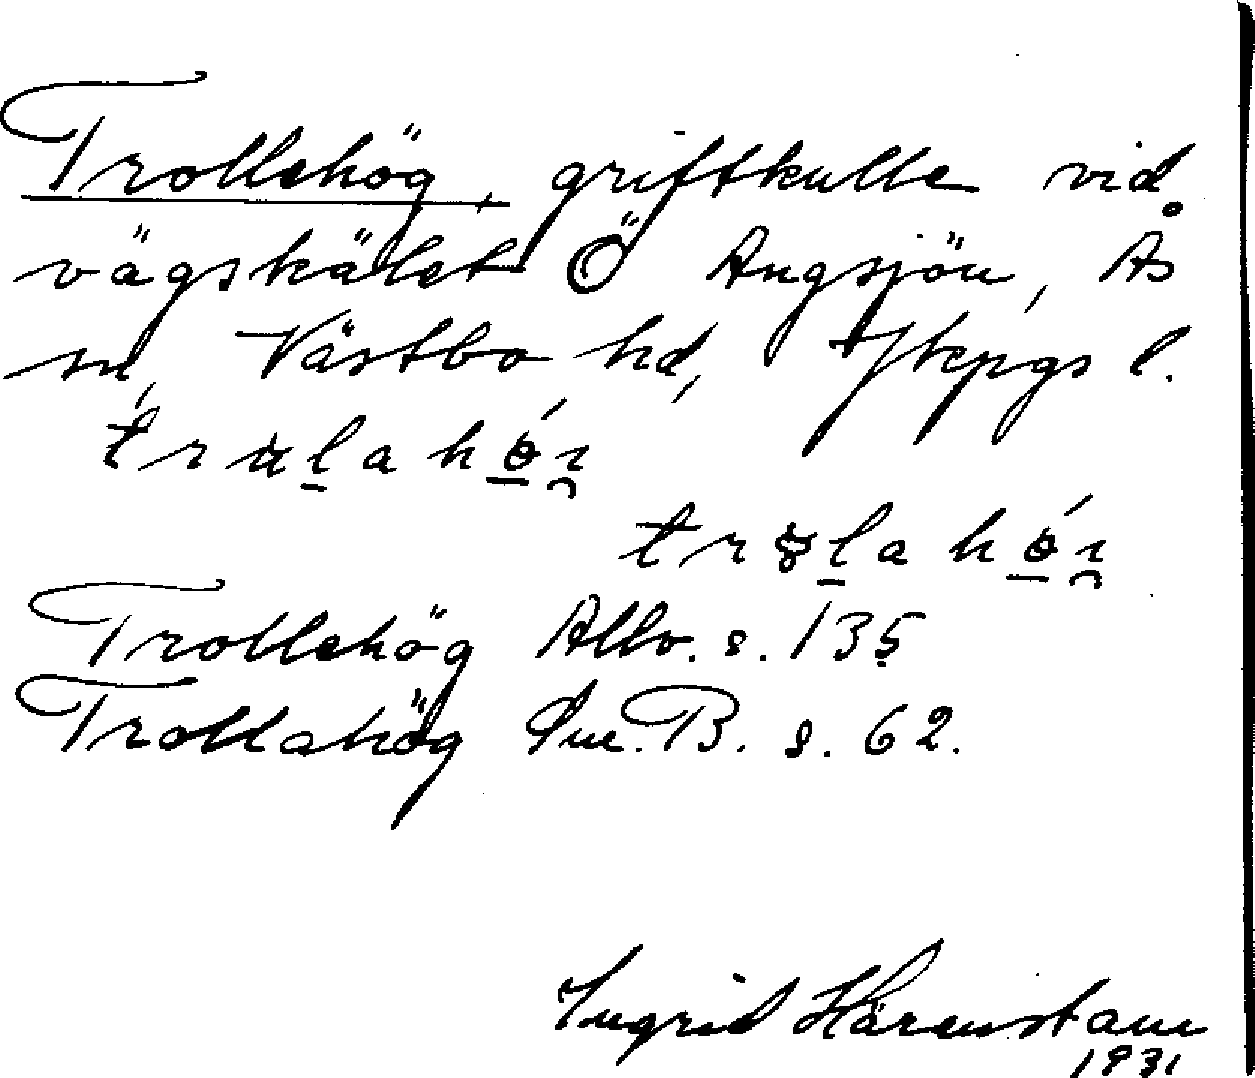 Trollehög, griftkulle vid
vägskälet Ö Angsjön, Ås
sn, Västbo hd, Jkpgs l.
trɷlahǿi̯
tr8lahǿi̯
Trollehög Allv. s. 135
Trollahög Sue. B. s. 62.
Ingrid Härenstam
1931